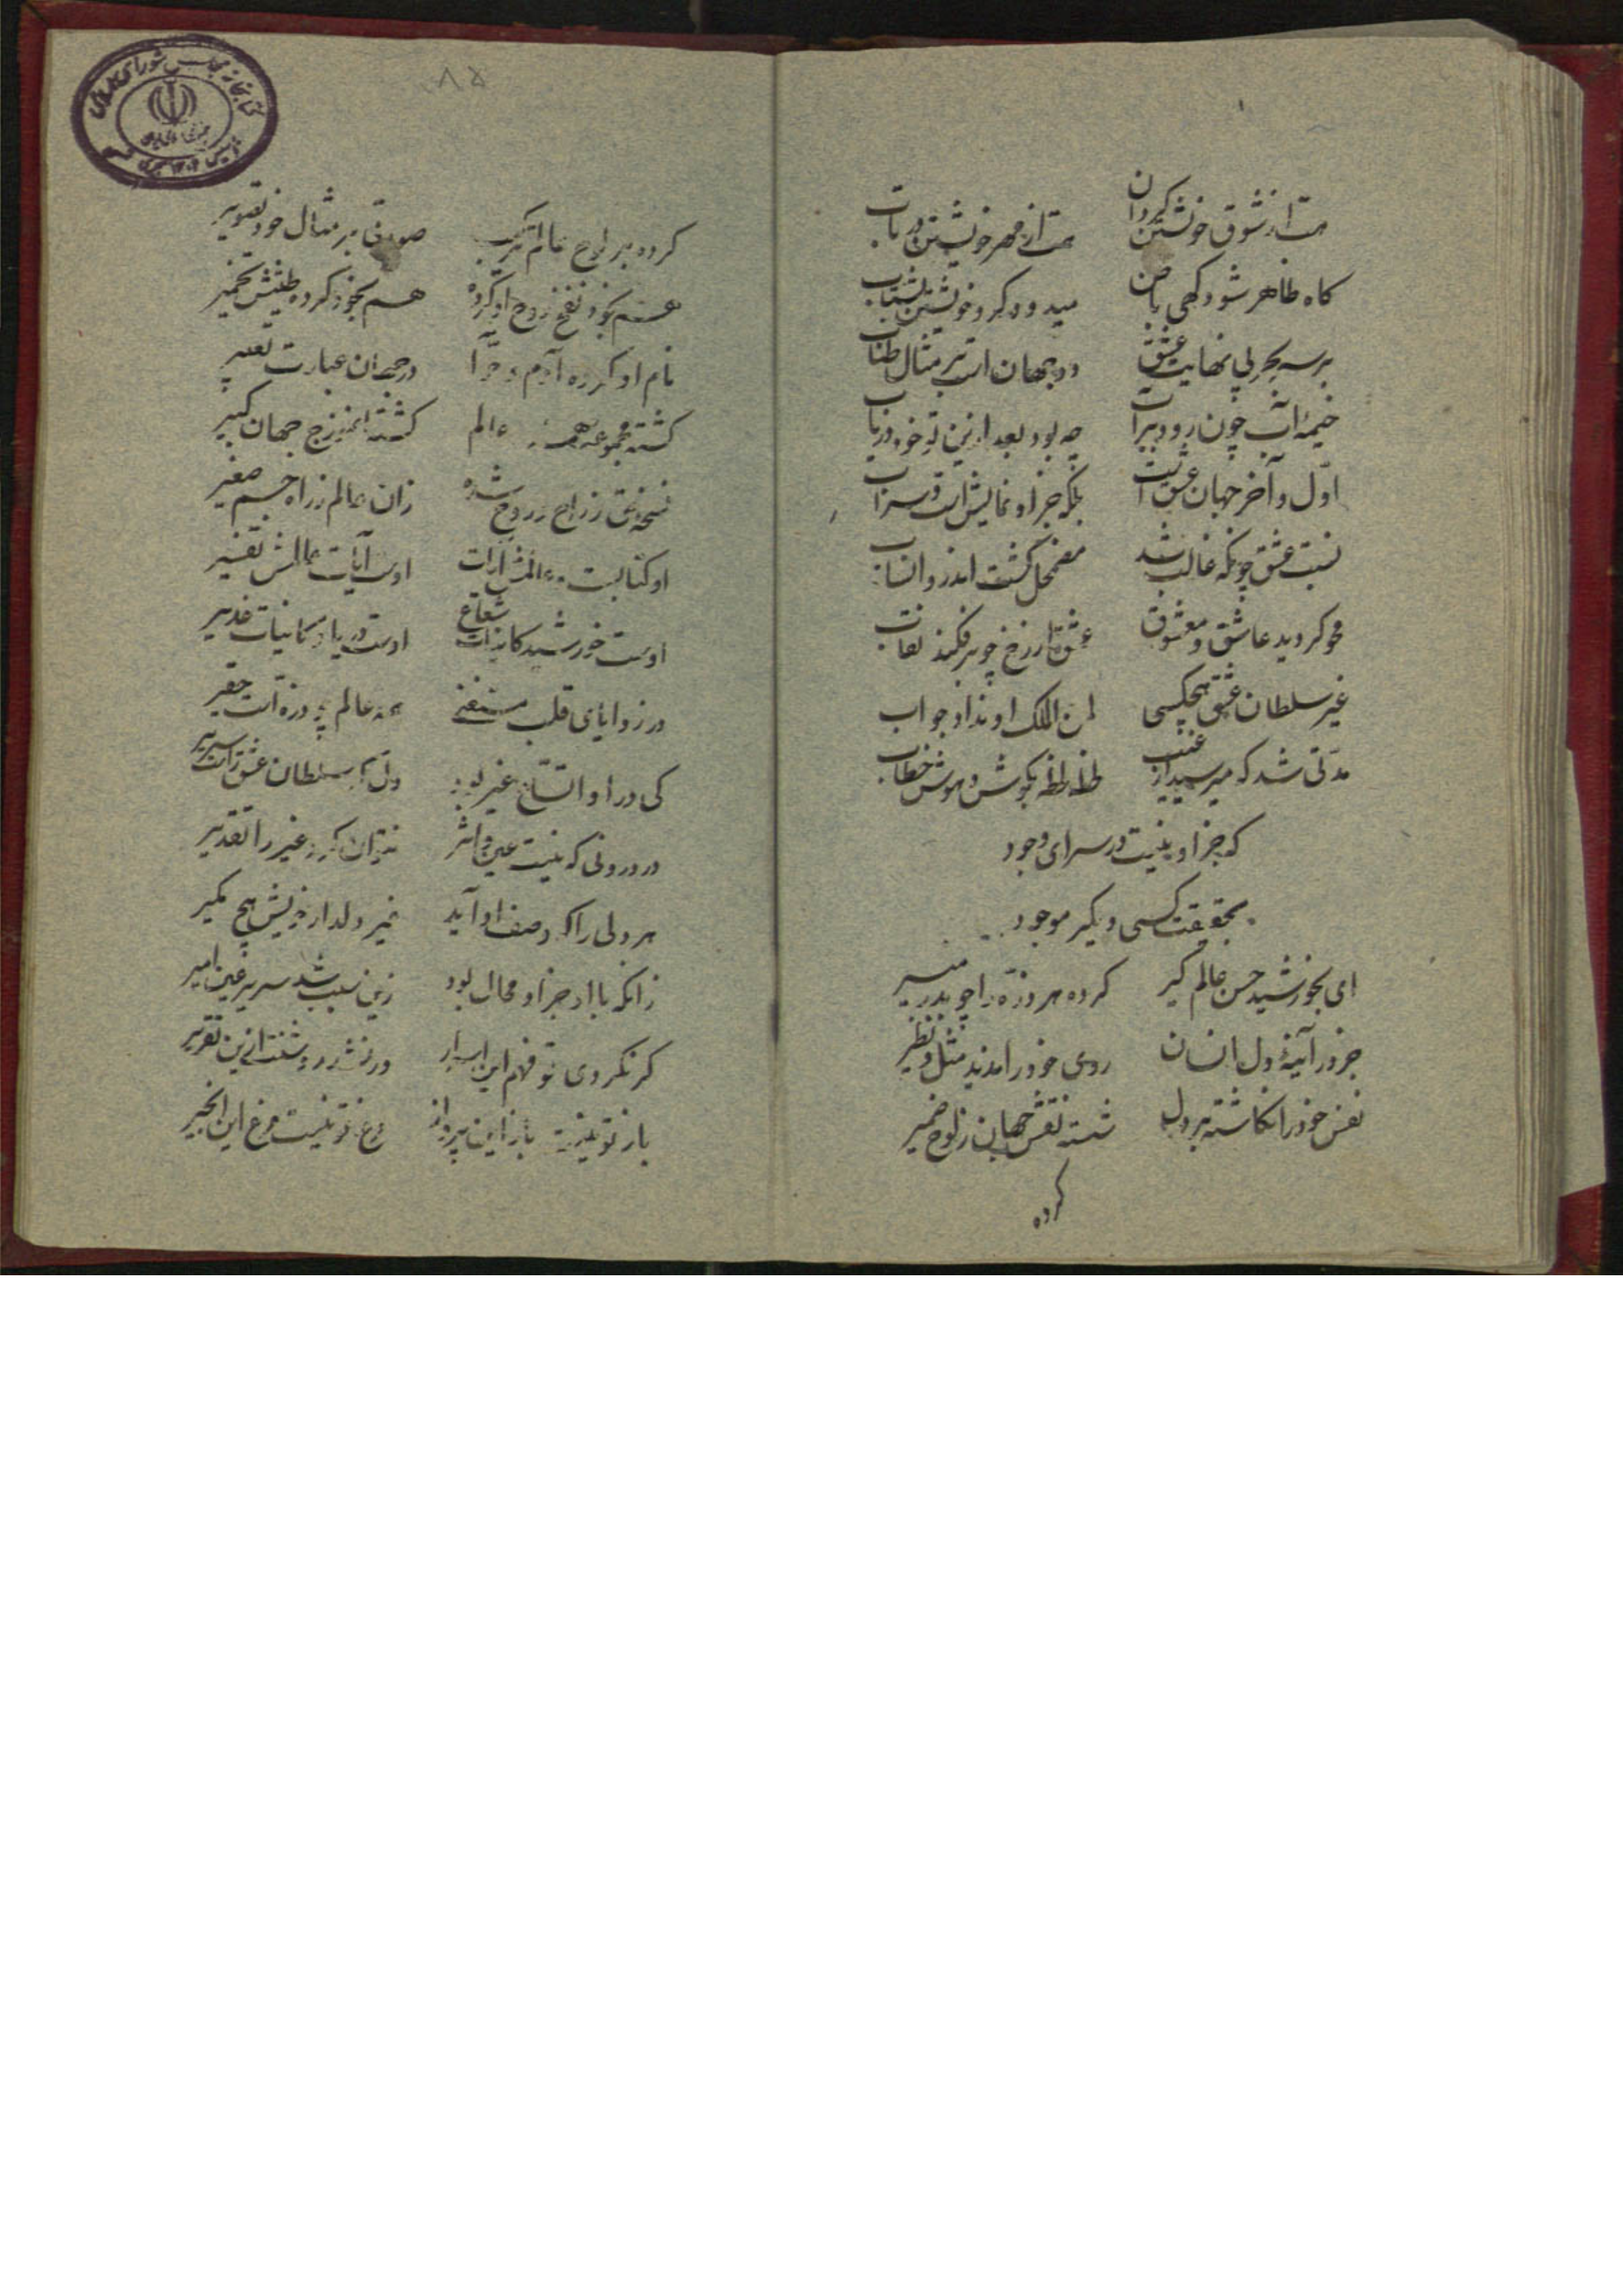 هست از شوق خویشتن گردان هست از مهر خویشتن در تاب
کاه ظاهر شود کهی باطن میدود کرد خویشتن بشتاب
بر سر بحر بی نهایت عشق دو جهان است بر مثال حباب
خیمهٔ آب چون رود بر آب چه بود بعد ازین تو خود دریاب
اوّل و آخر جهان عشق است بلکه جز او نمایش است و سراب
نسبت عشق چونکه غالب شد مضمحل گشت اندرو انساب
محو کردید عاشق و معشوق عشق از رخ چو بر فکند نقاب
غیر سلطان عشق هیچکسی لمن الملک او نداد جواب
مدّتی شد که میرسید از غیب لحظه لحظه بکوش هوش خطاب
که جز او نیست در سرای وجود
بحقیقت کسی دیکر موجود
ای بخورشید حسن عالم کیر کرده هر ذرّه را چو بدر منیر
جز در آئینهٔ دل انسان روی خود را ندید مثل و نظیر
نقش خود را نکاشته بر دل شسته نقش جهان ز لوح ضمیر
کرده
کرده بر لوح عالم ترکیب صورتی بر مثال خود تصویر
هم بخود نفخ روح او کرده هم بخود کرده طینتش تخمیر
نام او کرده آدم و حوّا در جهان عبارت تعبیر
کشته مجموعه همه عالم کشته انموزج جهان کبیر
شده زان عالم ز راه جسم صغیر
او کتابست و عالمش آیات اوست آیات عالمش تفسیر
اوست خورشید کاینات شعاع اوست دریا و کاینات غدیر
در زوایای قلب مستغنی همه عالم چو ذره است حقیر
کی در او اتّساع غیر بود دل که سلطان عشق راست سریر
در درونی که نیست عین و اثر نتوان کرد غیر را تقدیر
هر دلی را که وصف او آید غیر دلدار خویش هیچ مکیر
زانکه با او جز او محال بود زین سبب شد سریر عین امیر
کر نکردی تو فهم این اسرار ور نشد روشنت ازین تقریر
باز تو نیست باز این پرواز مرغ تو نیست مرغ این انجیر